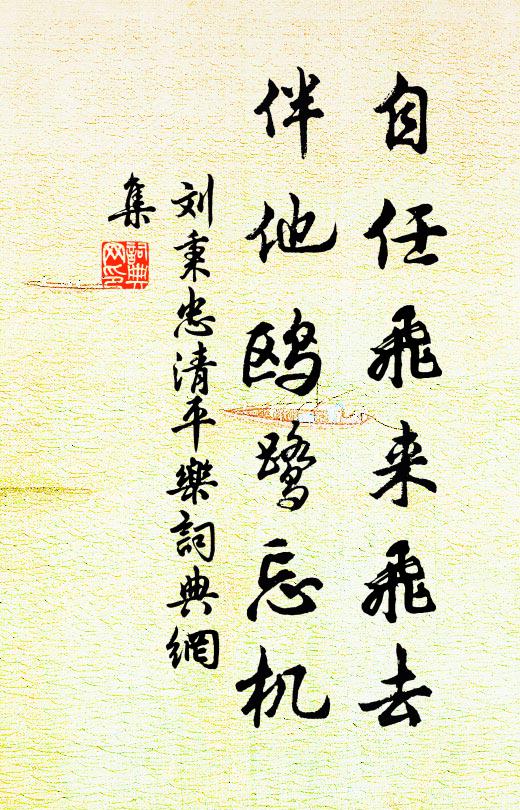 自任飛来飛去
伴他鸥鹭忘机
刘秉忠清平樂詞典網
集
詞典
网印